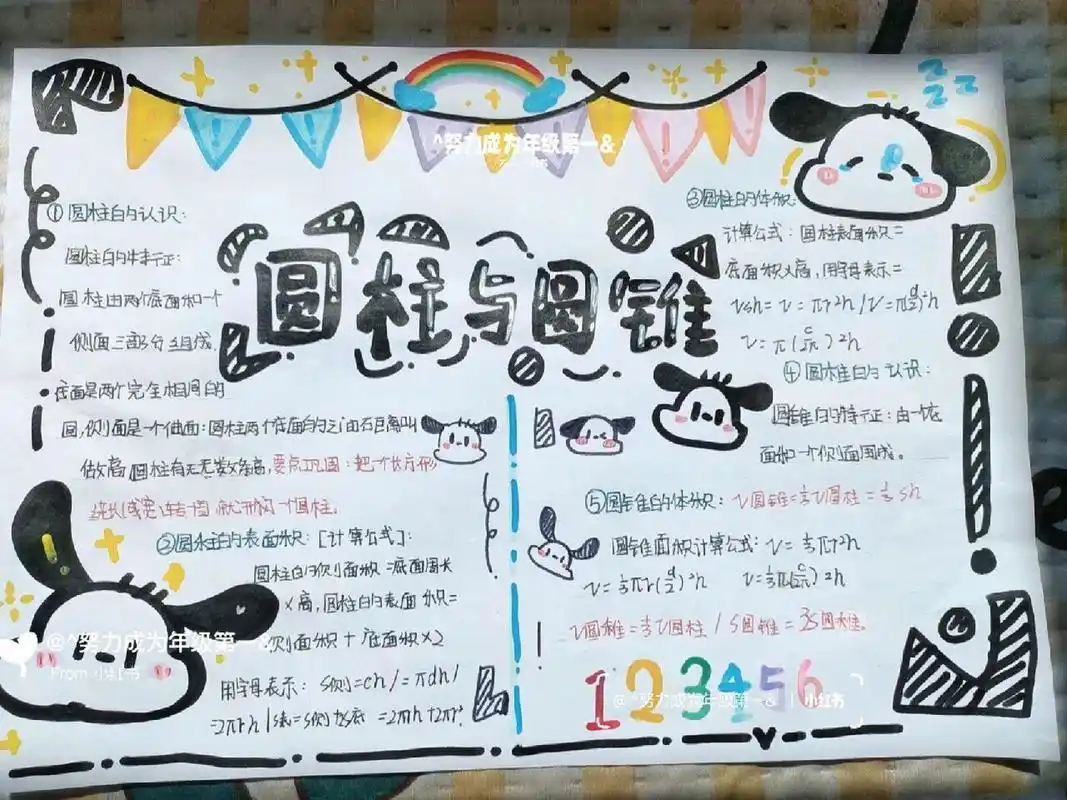 ^努力成为年级第一&
圆柱与圆锥
①圆柱的认识:
圆柱的特征:
圆柱由两个底面和一个
侧面三部分组成。
底面是两个完全相同的
圆,侧面是一个曲面:圆柱两个底面的之间距离叫
做高,圆柱有无数条高,要点巩固:把一个长方形
旋转一周,就形成一个圆柱。
②圆柱的表面积:[计算公式]:
圆柱的侧面积=底面周长
×高,圆柱的表面积=
侧面积+底面积×2
用字母表示:S侧=ch/=πdh/
=2πrh/S表=S侧+2S底=2πrh+2πr²
③圆柱的体积:
计算公式:圆柱表面积=
底面积×高,用字母表示=
V=Sh=V=πr²h/V=π(d/2)²h
V=π( )²h
④圆柱的认识:
圆锥的特征:由一个底
面和一个侧面围成。
⑤圆锥的体积:V圆锥=⅓V圆柱=⅓Sh
圆锥面积计算公式:V=⅓πr²h
V=⅓πr(d/2)²h V=⅓π( )²h
V圆锥=⅓V圆柱/S圆锥=3S圆柱
123456
@^努力成为年级第一&
From 小红书
@^努力成为年级第一& | 小红书